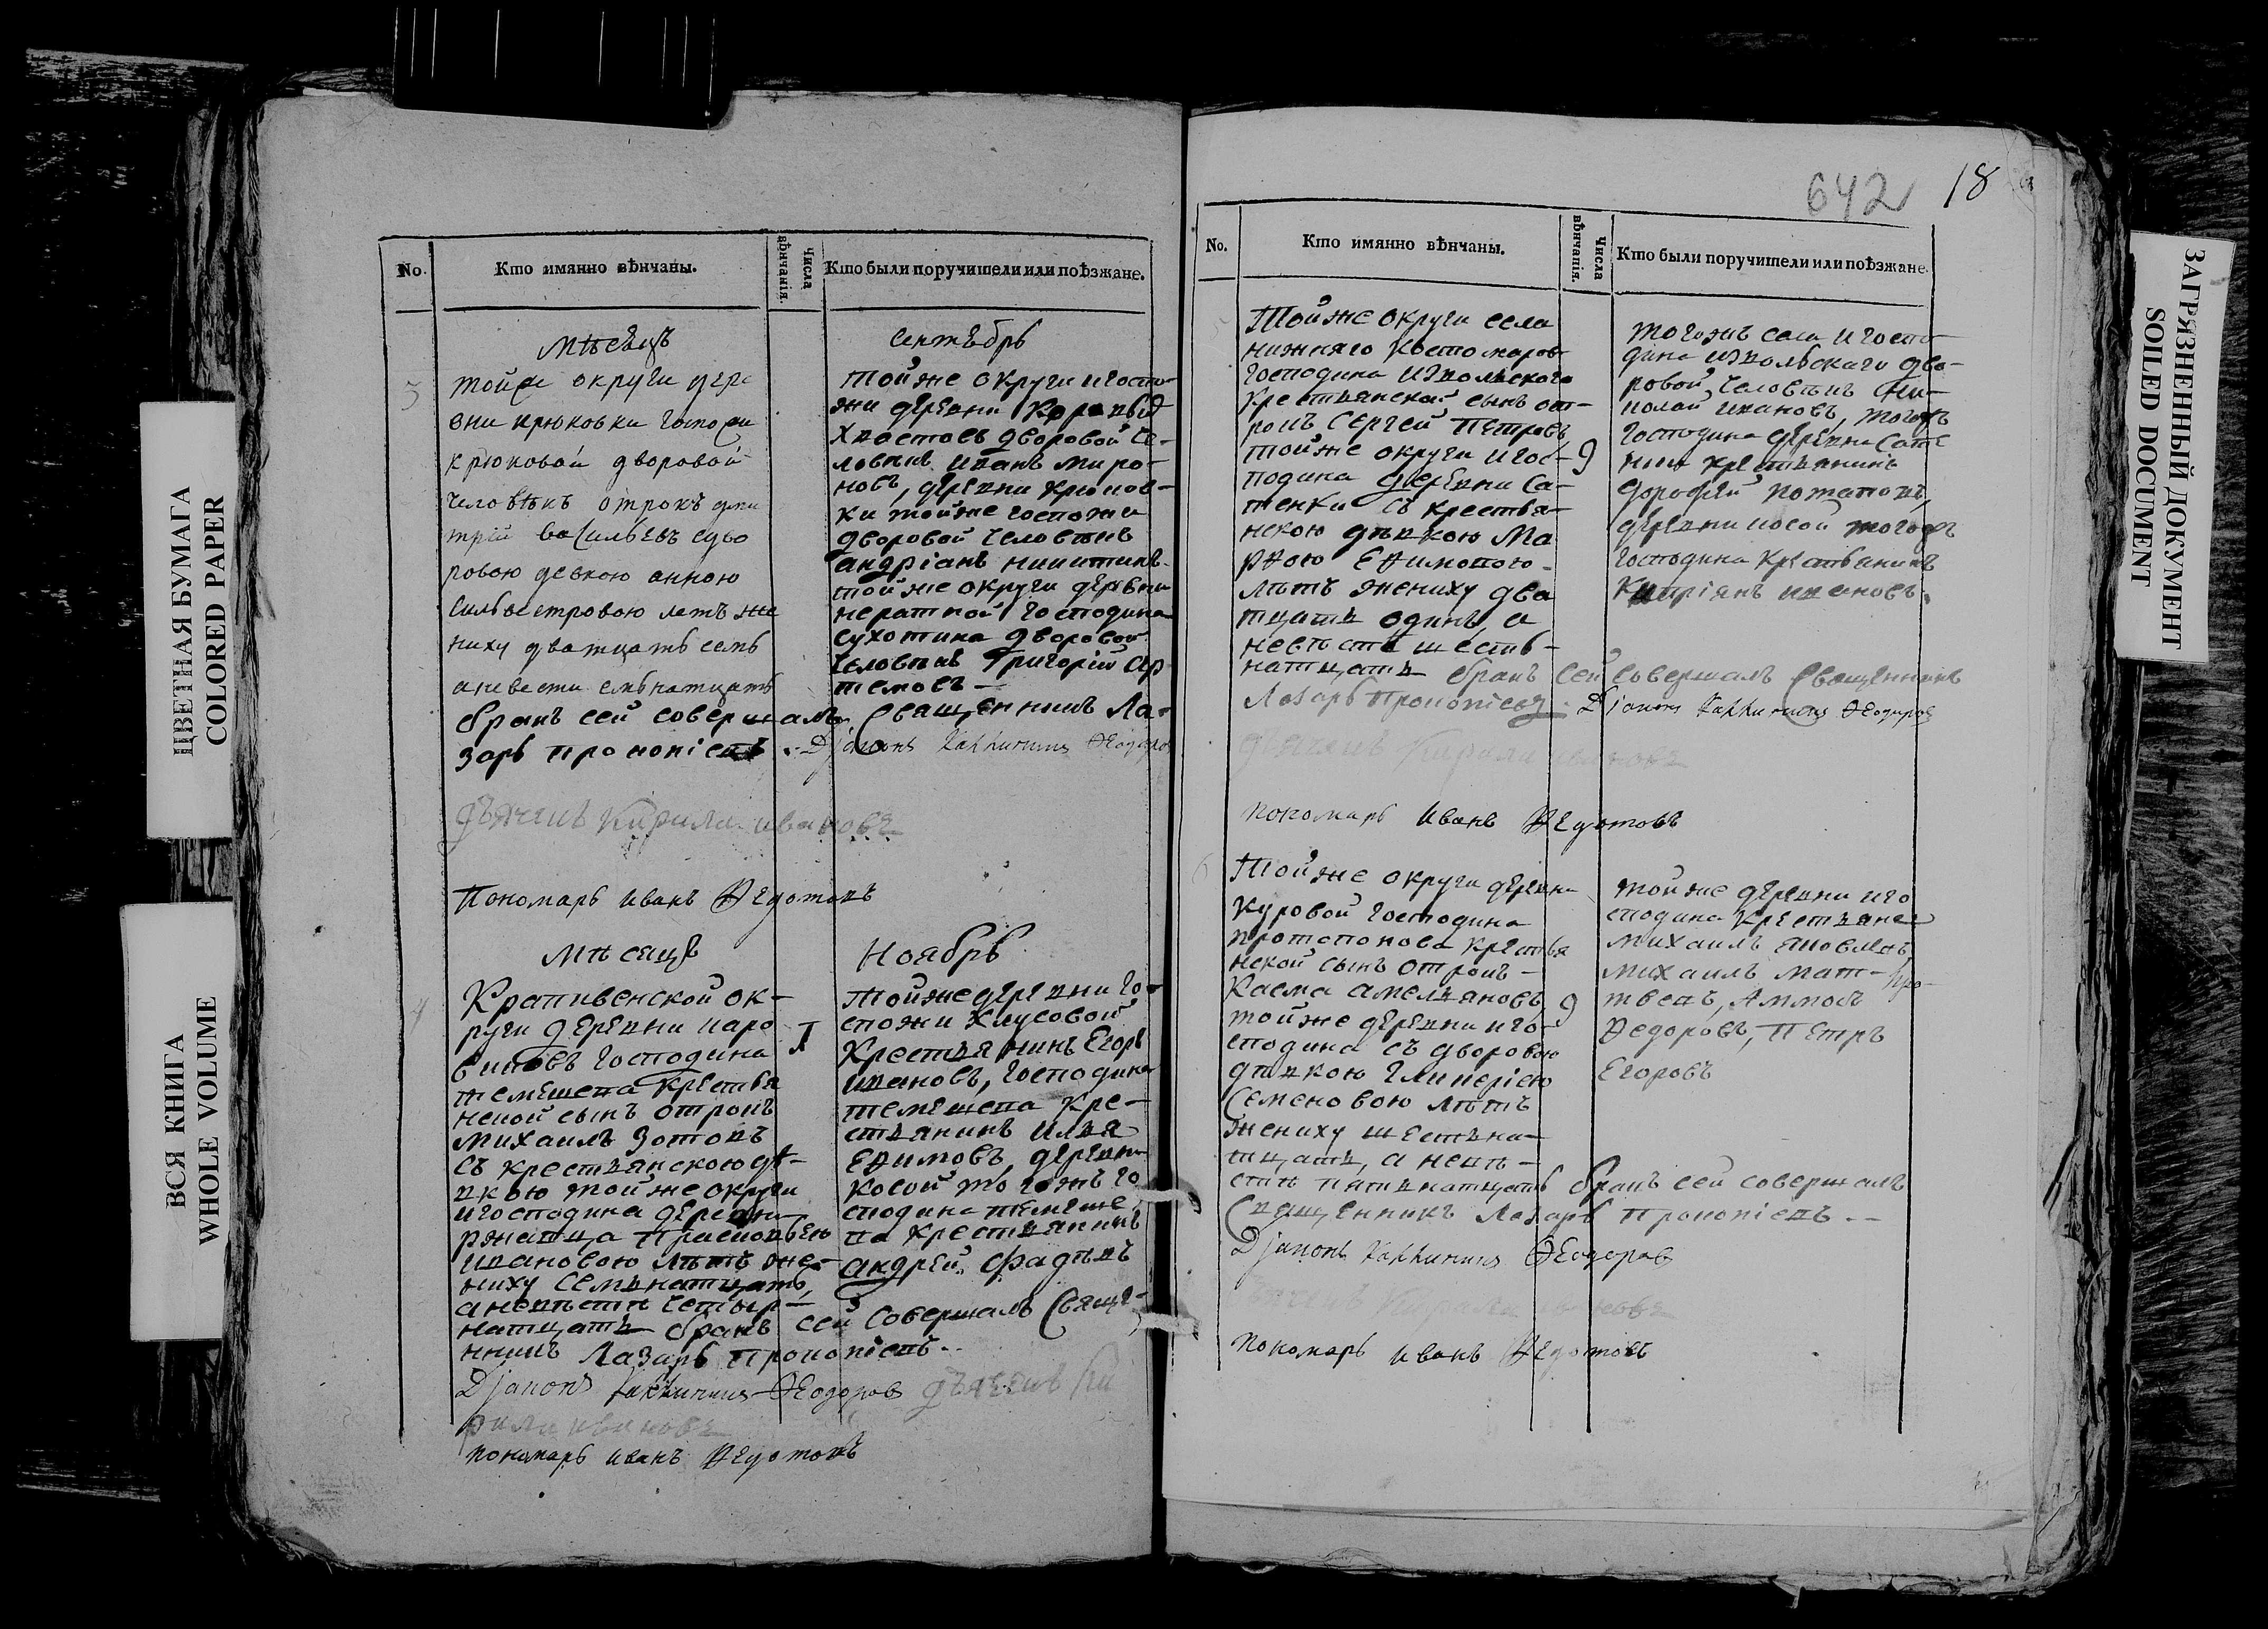 ЦВЕТНАЯ БУМАГА
COLORED PAPER
ВСЯ КНИГА
WHOLE VOLUME
No.
Кто имянно вѣнчаны.
Числа вѣнчанія.
Кто были поручители или поѣзжане.
мѣсецъ
сентебрь
3
округи дере
вни крюковки госпожи
крюковой дворовой
человѣкъ отрокъ дми
трій васильевъ сдво
ровою девкою анною
сильвестровою летъ же
ниху дватцать семь
аневести семьнатцать
бракъ сей совершалъ Священникъ Ла-
зарь прокопіевъ. Dіаконъ Өеодоров
тойже округи игоспо-
жи деревни
Хвостовъ дворовой че-
ловѣкъ иванъ миро-
новъ, деревни крюков-
ки тойже госпожи
дворовой человѣкъ
андріанъ никитинъ
тойже округи деревни
господина
сухотина дворовой
человѣкъ григорій ар-
темовъ
дьячекъ Кирила ивановъ
Пономарь иванъ Ѳедотовъ
мѣсецъ
Ноябрь
4
Крапивенской ок-
руги деревни
господина
темешева крестья
нской сынъ отрокъ
михаилъ Зотовъ
съ крестьянскою дѣ-
вкою тойже округи
игосподина деревни
ржавца прасковьею
ивановою лѣтъ же-
ниху семьнатцать,
аневѣстѣ четыр-
натцать бракъ сей совершалъ Свяще-
нникъ Лазарь прокопіевъ..
Dіаконъ Өеодоров дьячекъ Ки
рила ивановъ
пономарь иванъ Ѳедотовъ
тойже деревни го-
спожи Хлусовой
крестьянинъ Егоръ
ивановъ, господина
темешева кре-
стьянинъ илья
Ефимовъ, деревни
косой тогожъ го
сподина темеше
ва крестьянинъ
андрей Фадѣевъ
642
18
No.
Кто имянно вѣнчаны.
Числа вѣнчанія.
Кто были поручители или поѣзжане.
Тойже округи села
нижняго костомаров
господина извольскаго
крестьянской сынъ от-
рокъ Сергей петровъ,
тойже округи игос-
9
подина деревни са-
тенки съ крестья-
нскою дѣвкою Ма
рѳою Еѳимовою
лѣтъ жениху два
тцать одинъ, а
невѣстѣ шесть-
натцать бракъ сей совершалъ Священникъ
Лазарь прокопіевъ. Dіаконъ Өеодоров
тогожъ села игоспо-
дина извольскаго дво-
ровой человѣкъ ни-
колай ивановъ, тогожъ
господина деревни сате
нки крестьянинъ
дорофей потаповъ,
деревни косой тогожъ
господина крестьянинъ
Кипріянъ ивановъ.
дьячекъ Кирила ивановъ
пономарь иванъ Ѳедотовъ
6
Тойже округи деревни
куровой господина
протопопова крестья
нской сынъ отрокъ
Касма амельяновъ,
9
тойже деревни иго-
сподина съ дворовою
дѣвкою гликеріею
Семеновою лѣтъ
жениху шестьна-
тцать, а невѣ-
стѣ пятьнатцать бракъ сей совершалъ
Священникъ Лазарь прокопіевъ.
Dіаконъ Өеодоров
пономарь иванъ Ѳедотовъ
тойже деревни иго
сподина крестьяне
михаилъ яковлевъ,
михаилъ мат-
твеевъ,
Ѳедоровъ, петръ
Егоровъ
ЗАГРЯЗНЕННЫЙ ДОКУМЕНТ
SOILED DOCUMENT